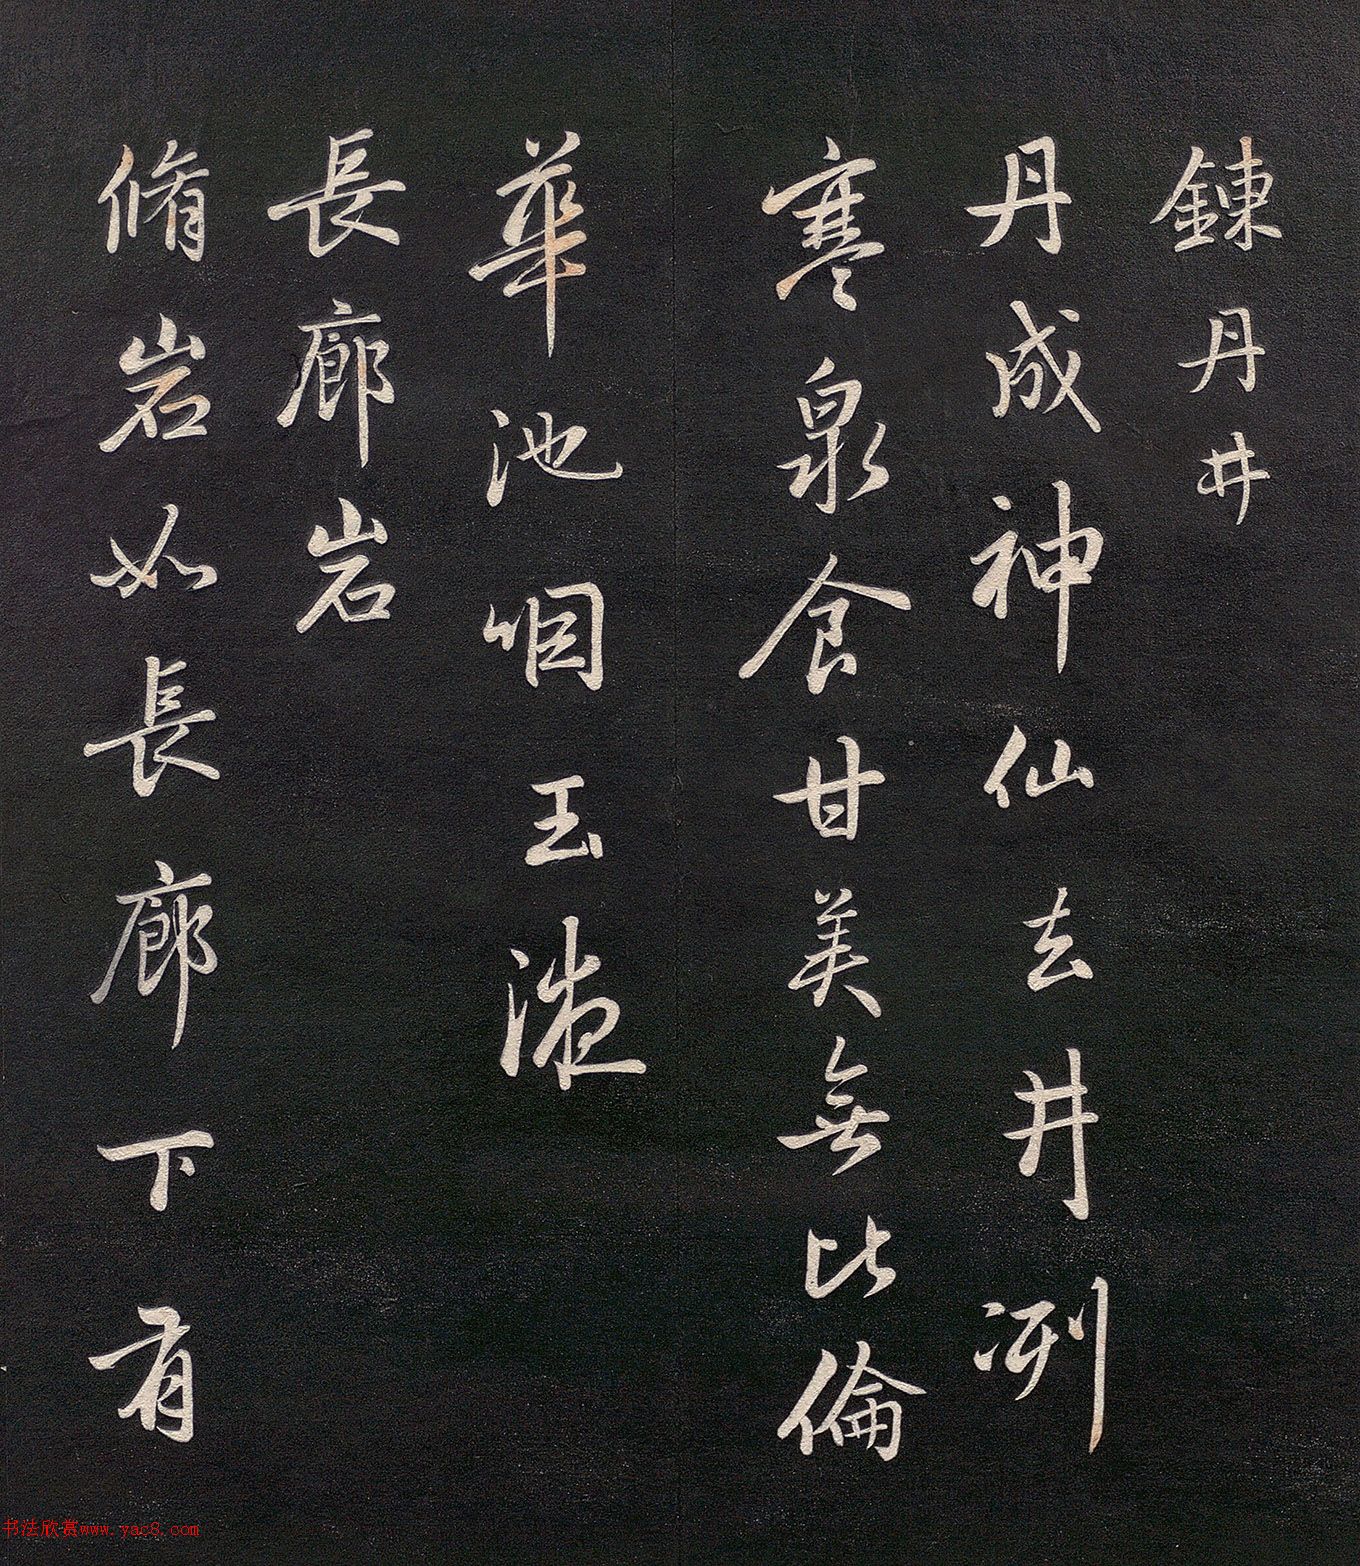 鍊丹井
丹成神仙去井冽
寒泉食甘美無比倫
華池咽玉液
長廊岩
脩岩如長廊下有
书法欣赏www.yac8.com